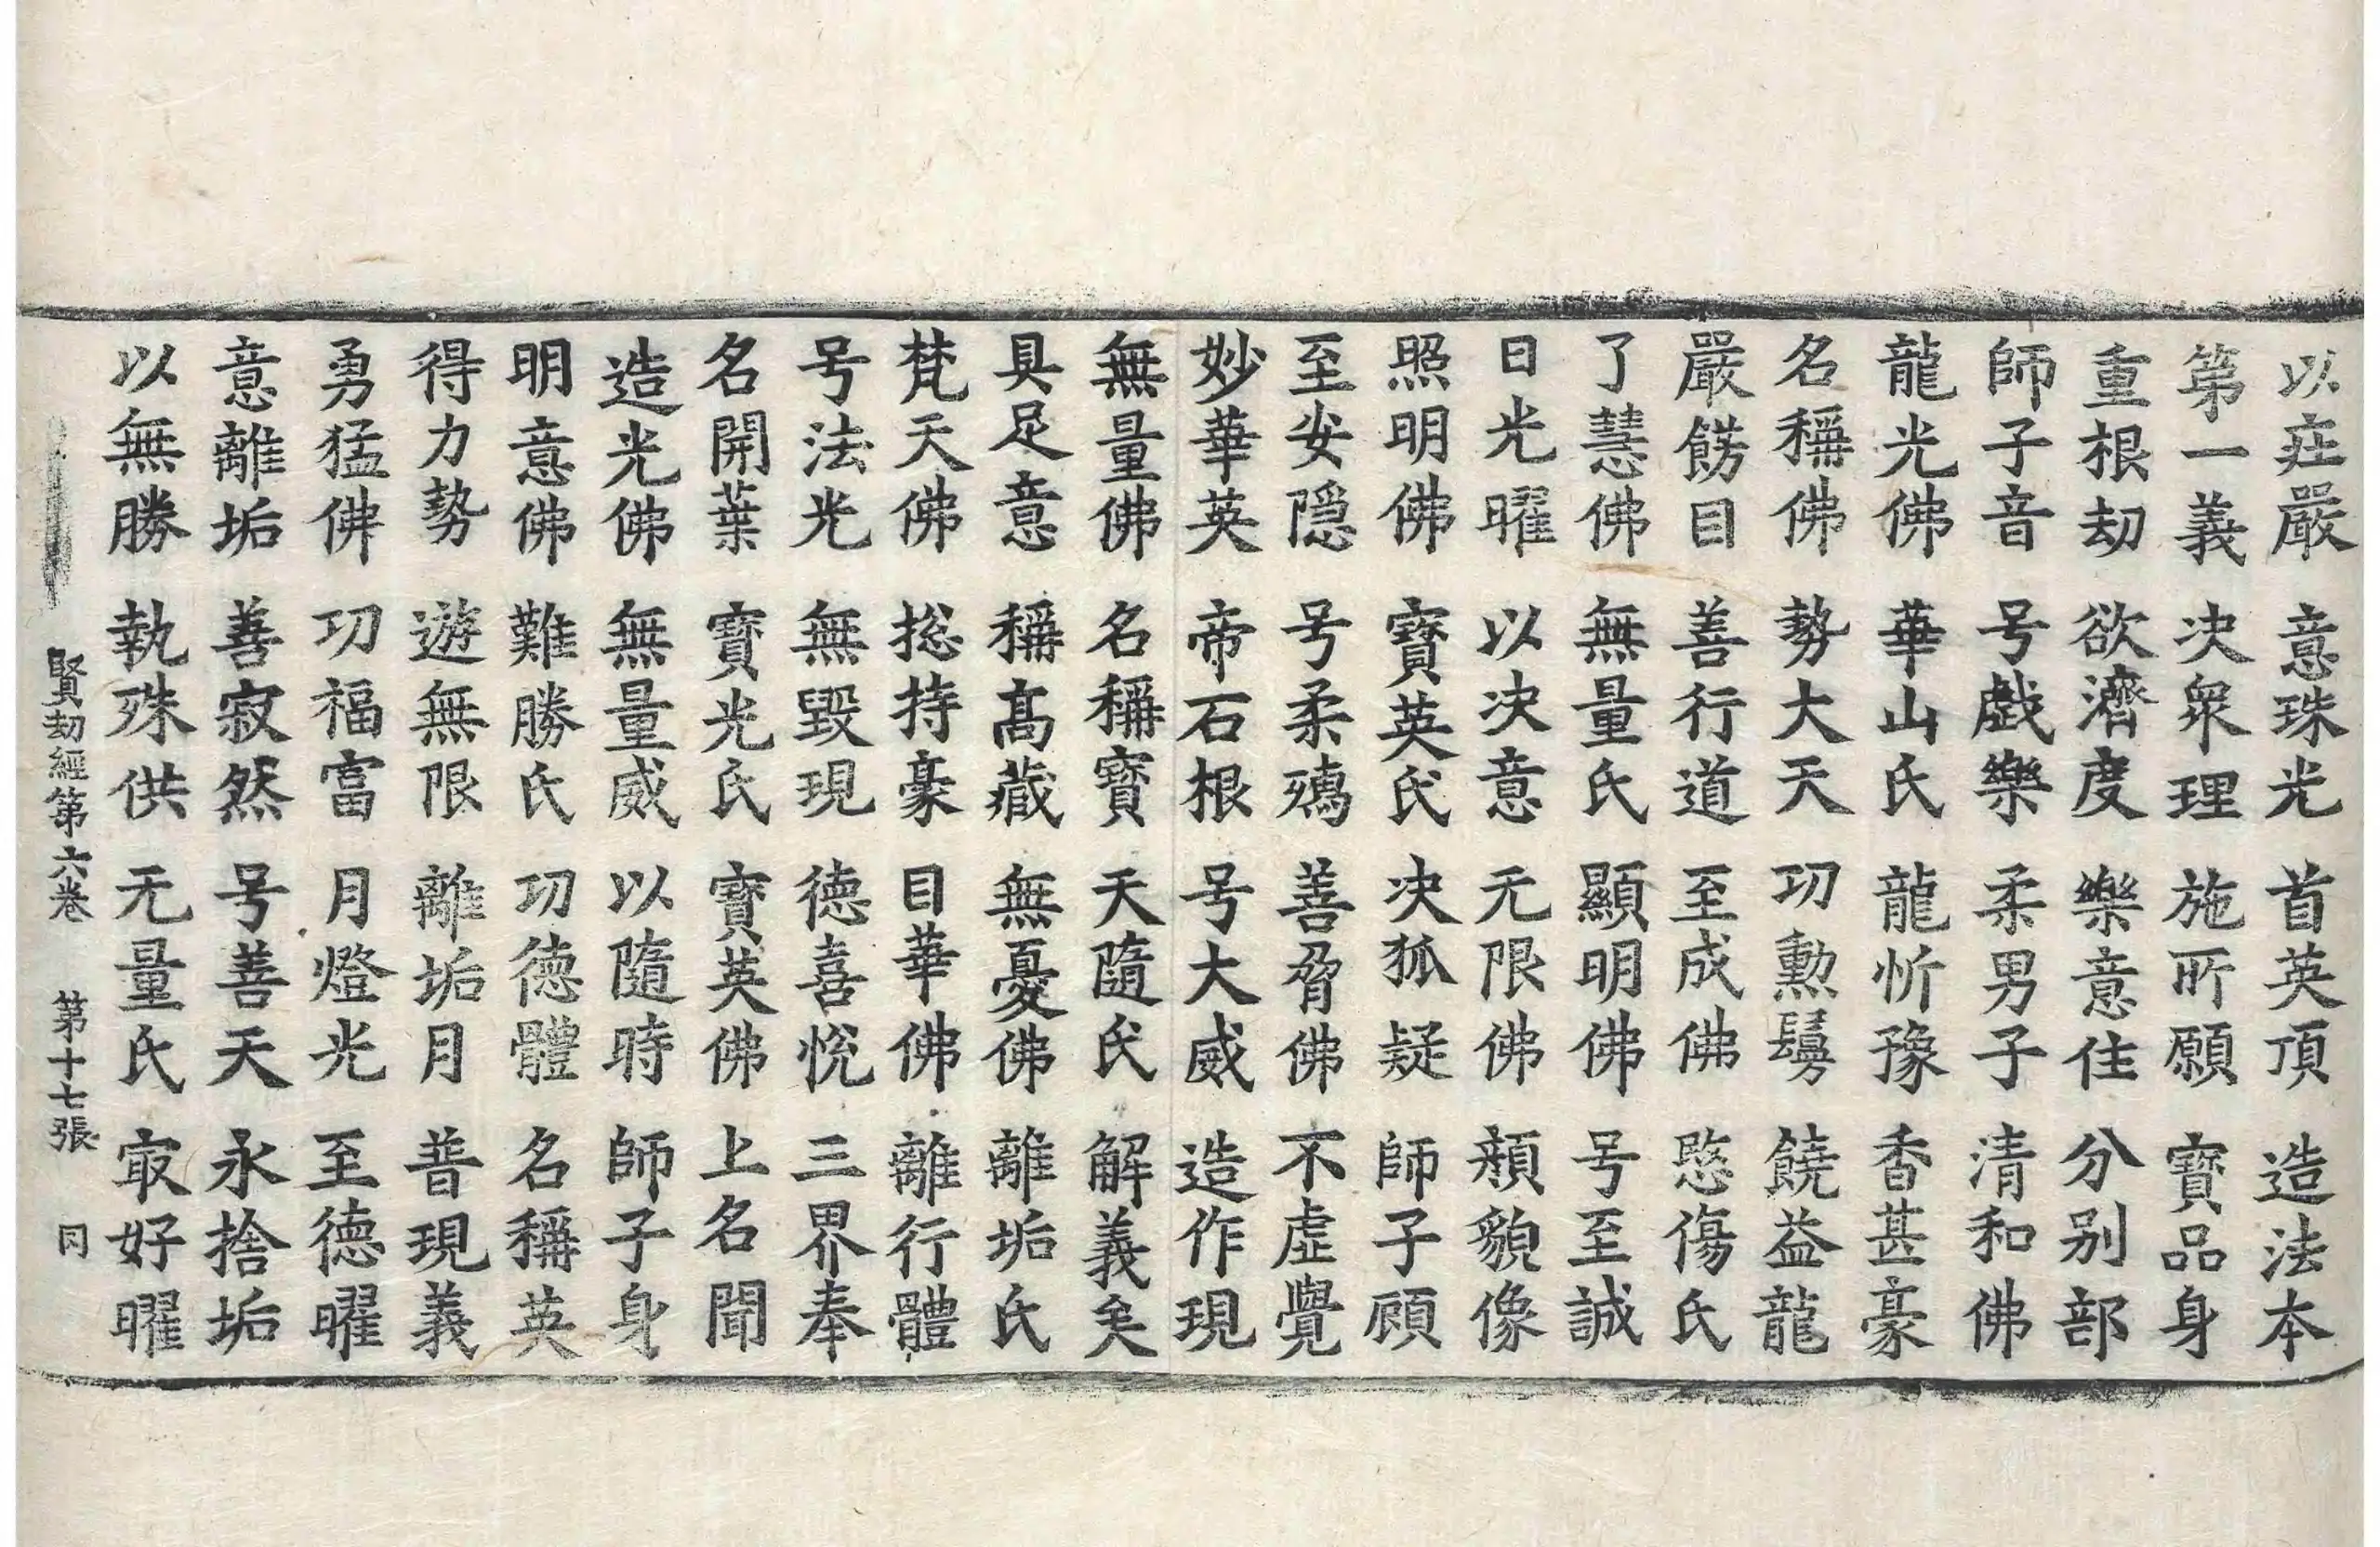 以庄嚴 意珠光 首英頂 造法本
第一義 决衆理 施所願 寶品身
重根劫 欲濟度 樂意住 分别部
師子音 号戲樂 柔男子 清和佛
龍光佛 華山氏 龍忻豫 香甚豪
名稱佛 勢大天 功勳鬘 饒益龍
嚴餝目 善行道 至成佛 愍傷氏
了慧佛 無量氏 顯明佛 号至誠
日光曜 以决意 无限佛 頯貌像
照明佛 寶英氏 决狐疑 師子頋
至安隠 号柔 善佛 不虚覺
妙華英 帝石根 号大威 造作現
無量佛 名稱寶 天隨氏 解義矣
具足意 稱髙藏 無憂佛 離垢氏
梵天佛 捴持豪 目華佛 離行體
号法光 無毀現 德喜恱 三界奉
名開葉 寶光氏 寶英佛 上名聞
造光佛 無量威 以隨時 師子身
明意佛 難勝氏 功德體 名稱英
得力勢 遊無限 離垢月 普現義
勇猛佛 功福富 月燈光 至德曜
意離垢 善寂然 号善天 永捨垢
以無勝 執殊供 无量氏 㝡好曜
賢劫經第六卷 第十七張 同